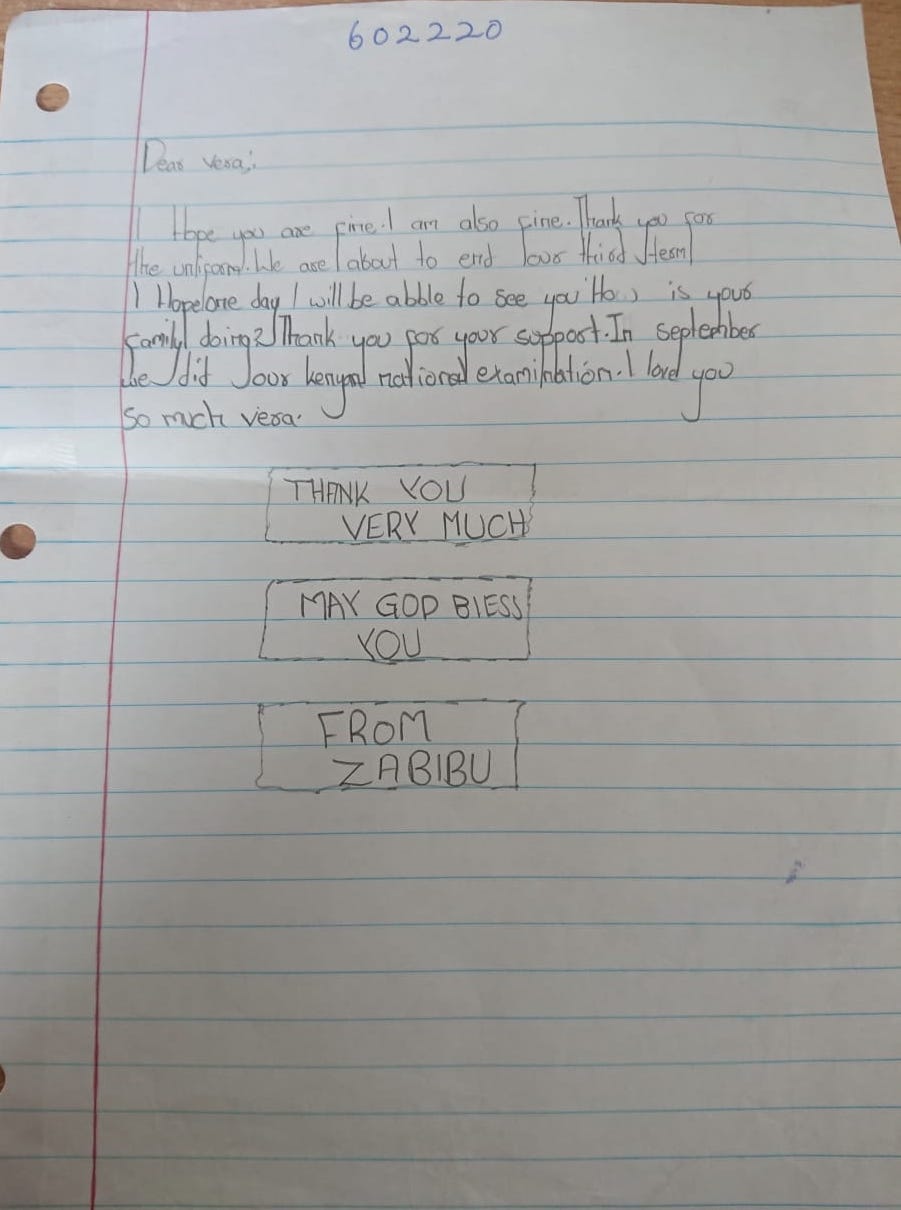 602220
Dear Vera,
I Hope you are fine. I am also fine. Thank you for
the uniform. We are about to end our third term
I Hope one day I will be abble to see you How is your
family doing? Thank you for your support. In september
we did our kenyan national examination. I love you
so much vera.
THANK YOU
VERY MUCH
MAY GOD BlESS
YOU
FROM
ZABIBU